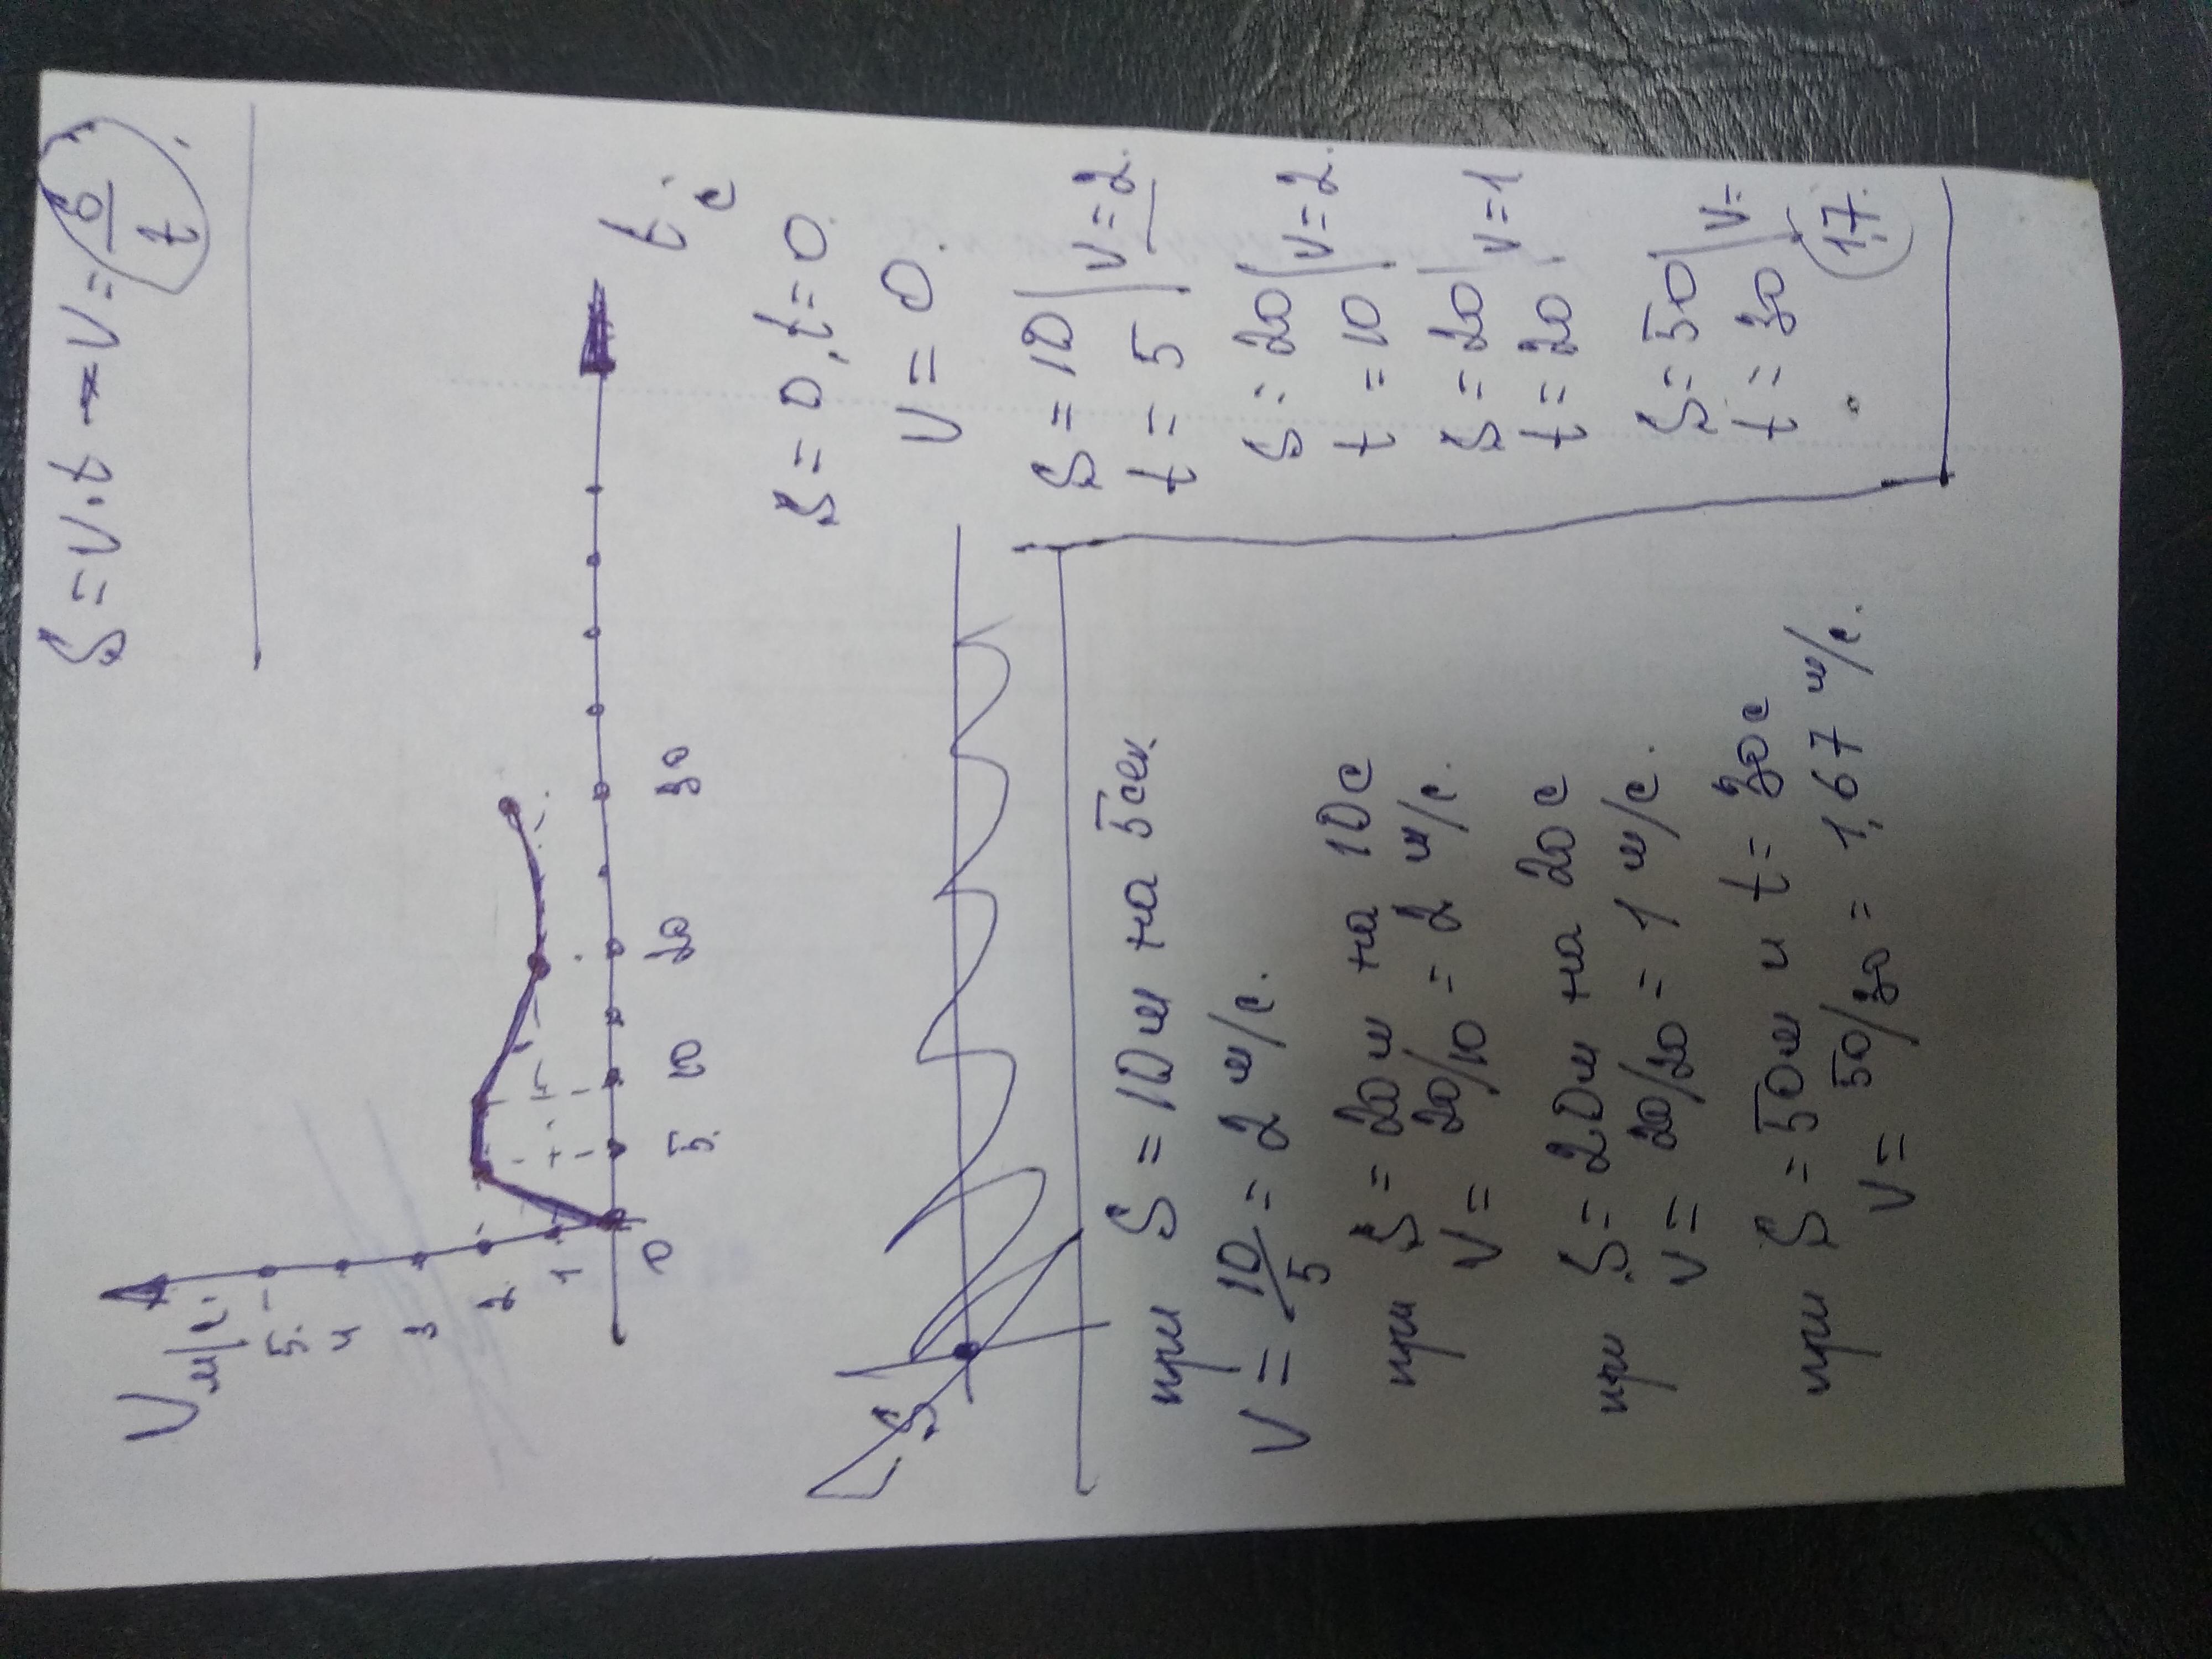 S = V·t → V = S/t
V м/с.
5.
4
3
2
1
0
5.
10
20
30
t с
S = 0, t = 0
V = 0.
S
S = 10 | V = 2.
t = 5
S = 20 | V = 2.
t = 10
S = 20 | V = 1
t = 20
S = 50 | V =
t = 30 1,7
при S = 10м на 5сек.
V = 10/5 = 2 м/с.
при S = 20м на 10с
V = 20/10 = 2 м/с.
при S = 20м на 20с
V = 20/20 = 1 м/с.
при S = 50м и t = 30с
V = 50/30 = 1,67 м/с.